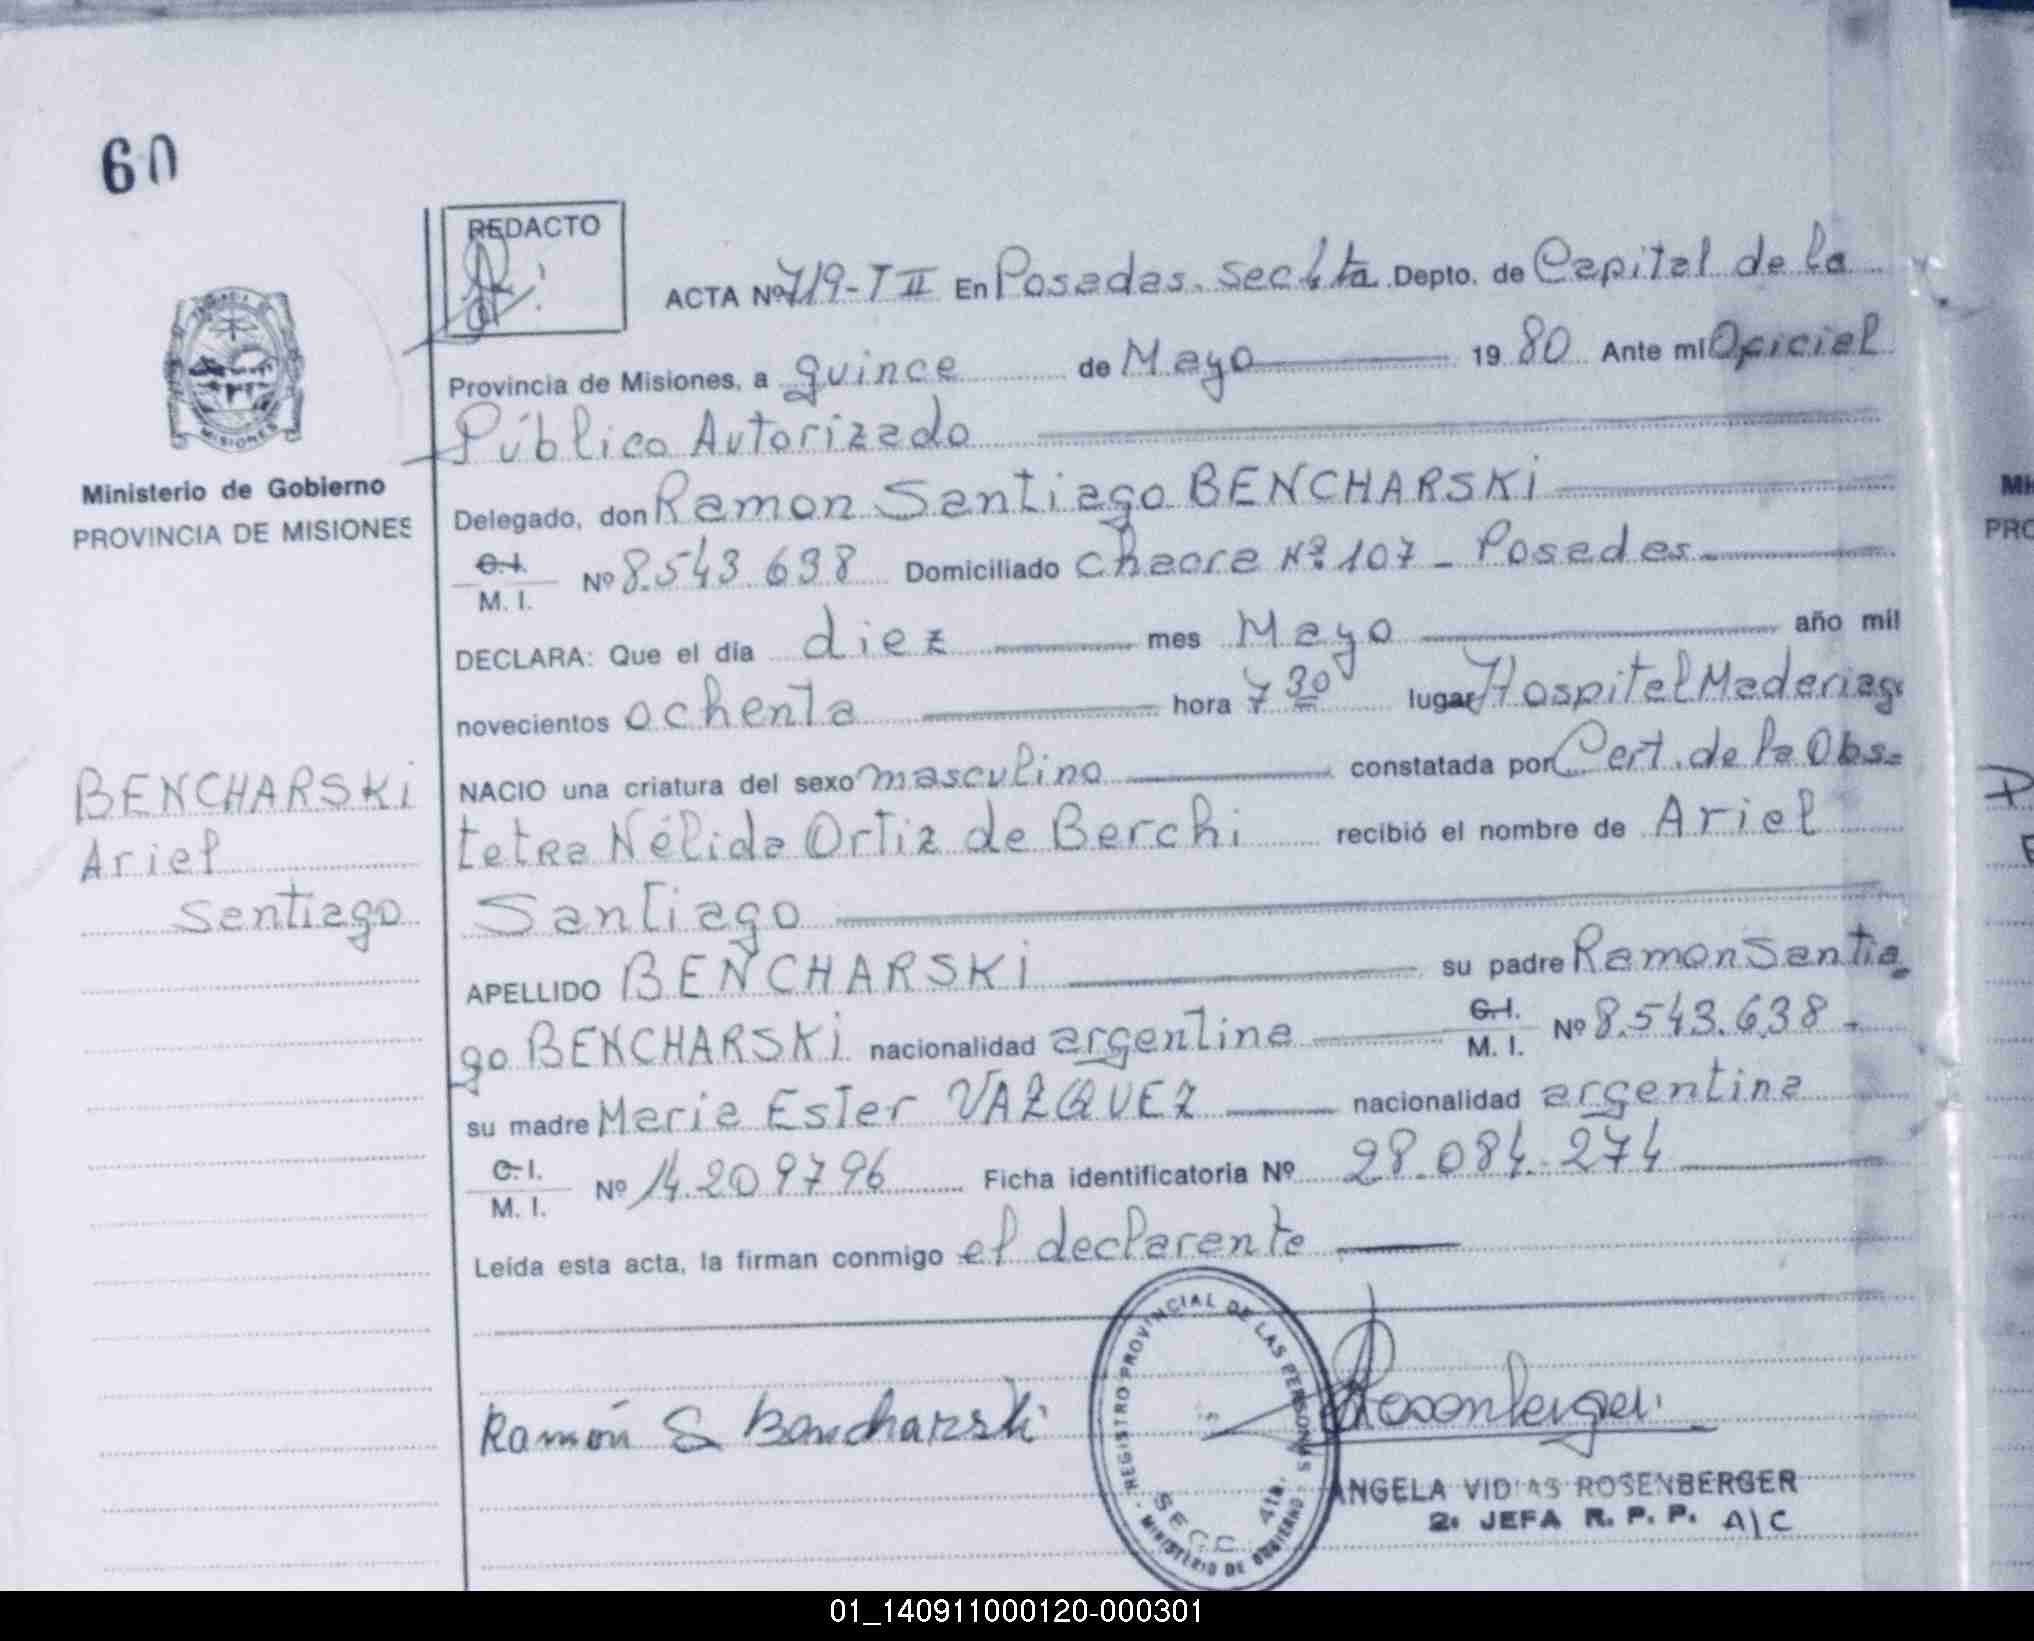 60
REDACTO
ACTA Nº 719-T II En Posadas. Sec 4ta. Depto. de Capital de la
Provincia de Misiones, a quince de Mayo 1980 Ante mi Oficial
Público Autorizado
Ministerio de Gobierno
PROVINCIA DE MISIONES
Delegado, don Ramon Santiago BENCHARSKi
C.I.
M. I. Nº 8.543.638 Domiciliado Chacra Nº 107 - Posadas
DECLARA: Que el dia diez mes Mayo año mil
novecientos ochenta hora 7 30 lugar Hospital Madariaga
BENCHARSKi
Ariel
Santiago
NACIO una criatura del sexo masculino constatada por Cert. de la Obs-
tetra Nélida Ortiz de Berchi recibió el nombre de Ariel
Santiago
APELLIDO BENCHARSKi su padre Ramon Santia
go BENCHARSKi nacionalidad argentina C.I.
M. I. Nº 8.543.638 -
su madre Maria Ester VAZQUEZ nacionalidad argentina
C.I.
M. I. Nº 14.209796 Ficha identificatoria Nº 28.084.274
Leída esta acta, la firman conmigo el declarente
Ramón S Bencharski
Rosenberger
REGISTRO PROVINCIAL DE LAS PERSONAS
SECC. 4ta.
MINISTERIO DE GOBIERNO
ANGELA VIDIAS ROSENBERGER
2ª JEFA R. P. P. A/C
MISIONES
01_140911000120-000301